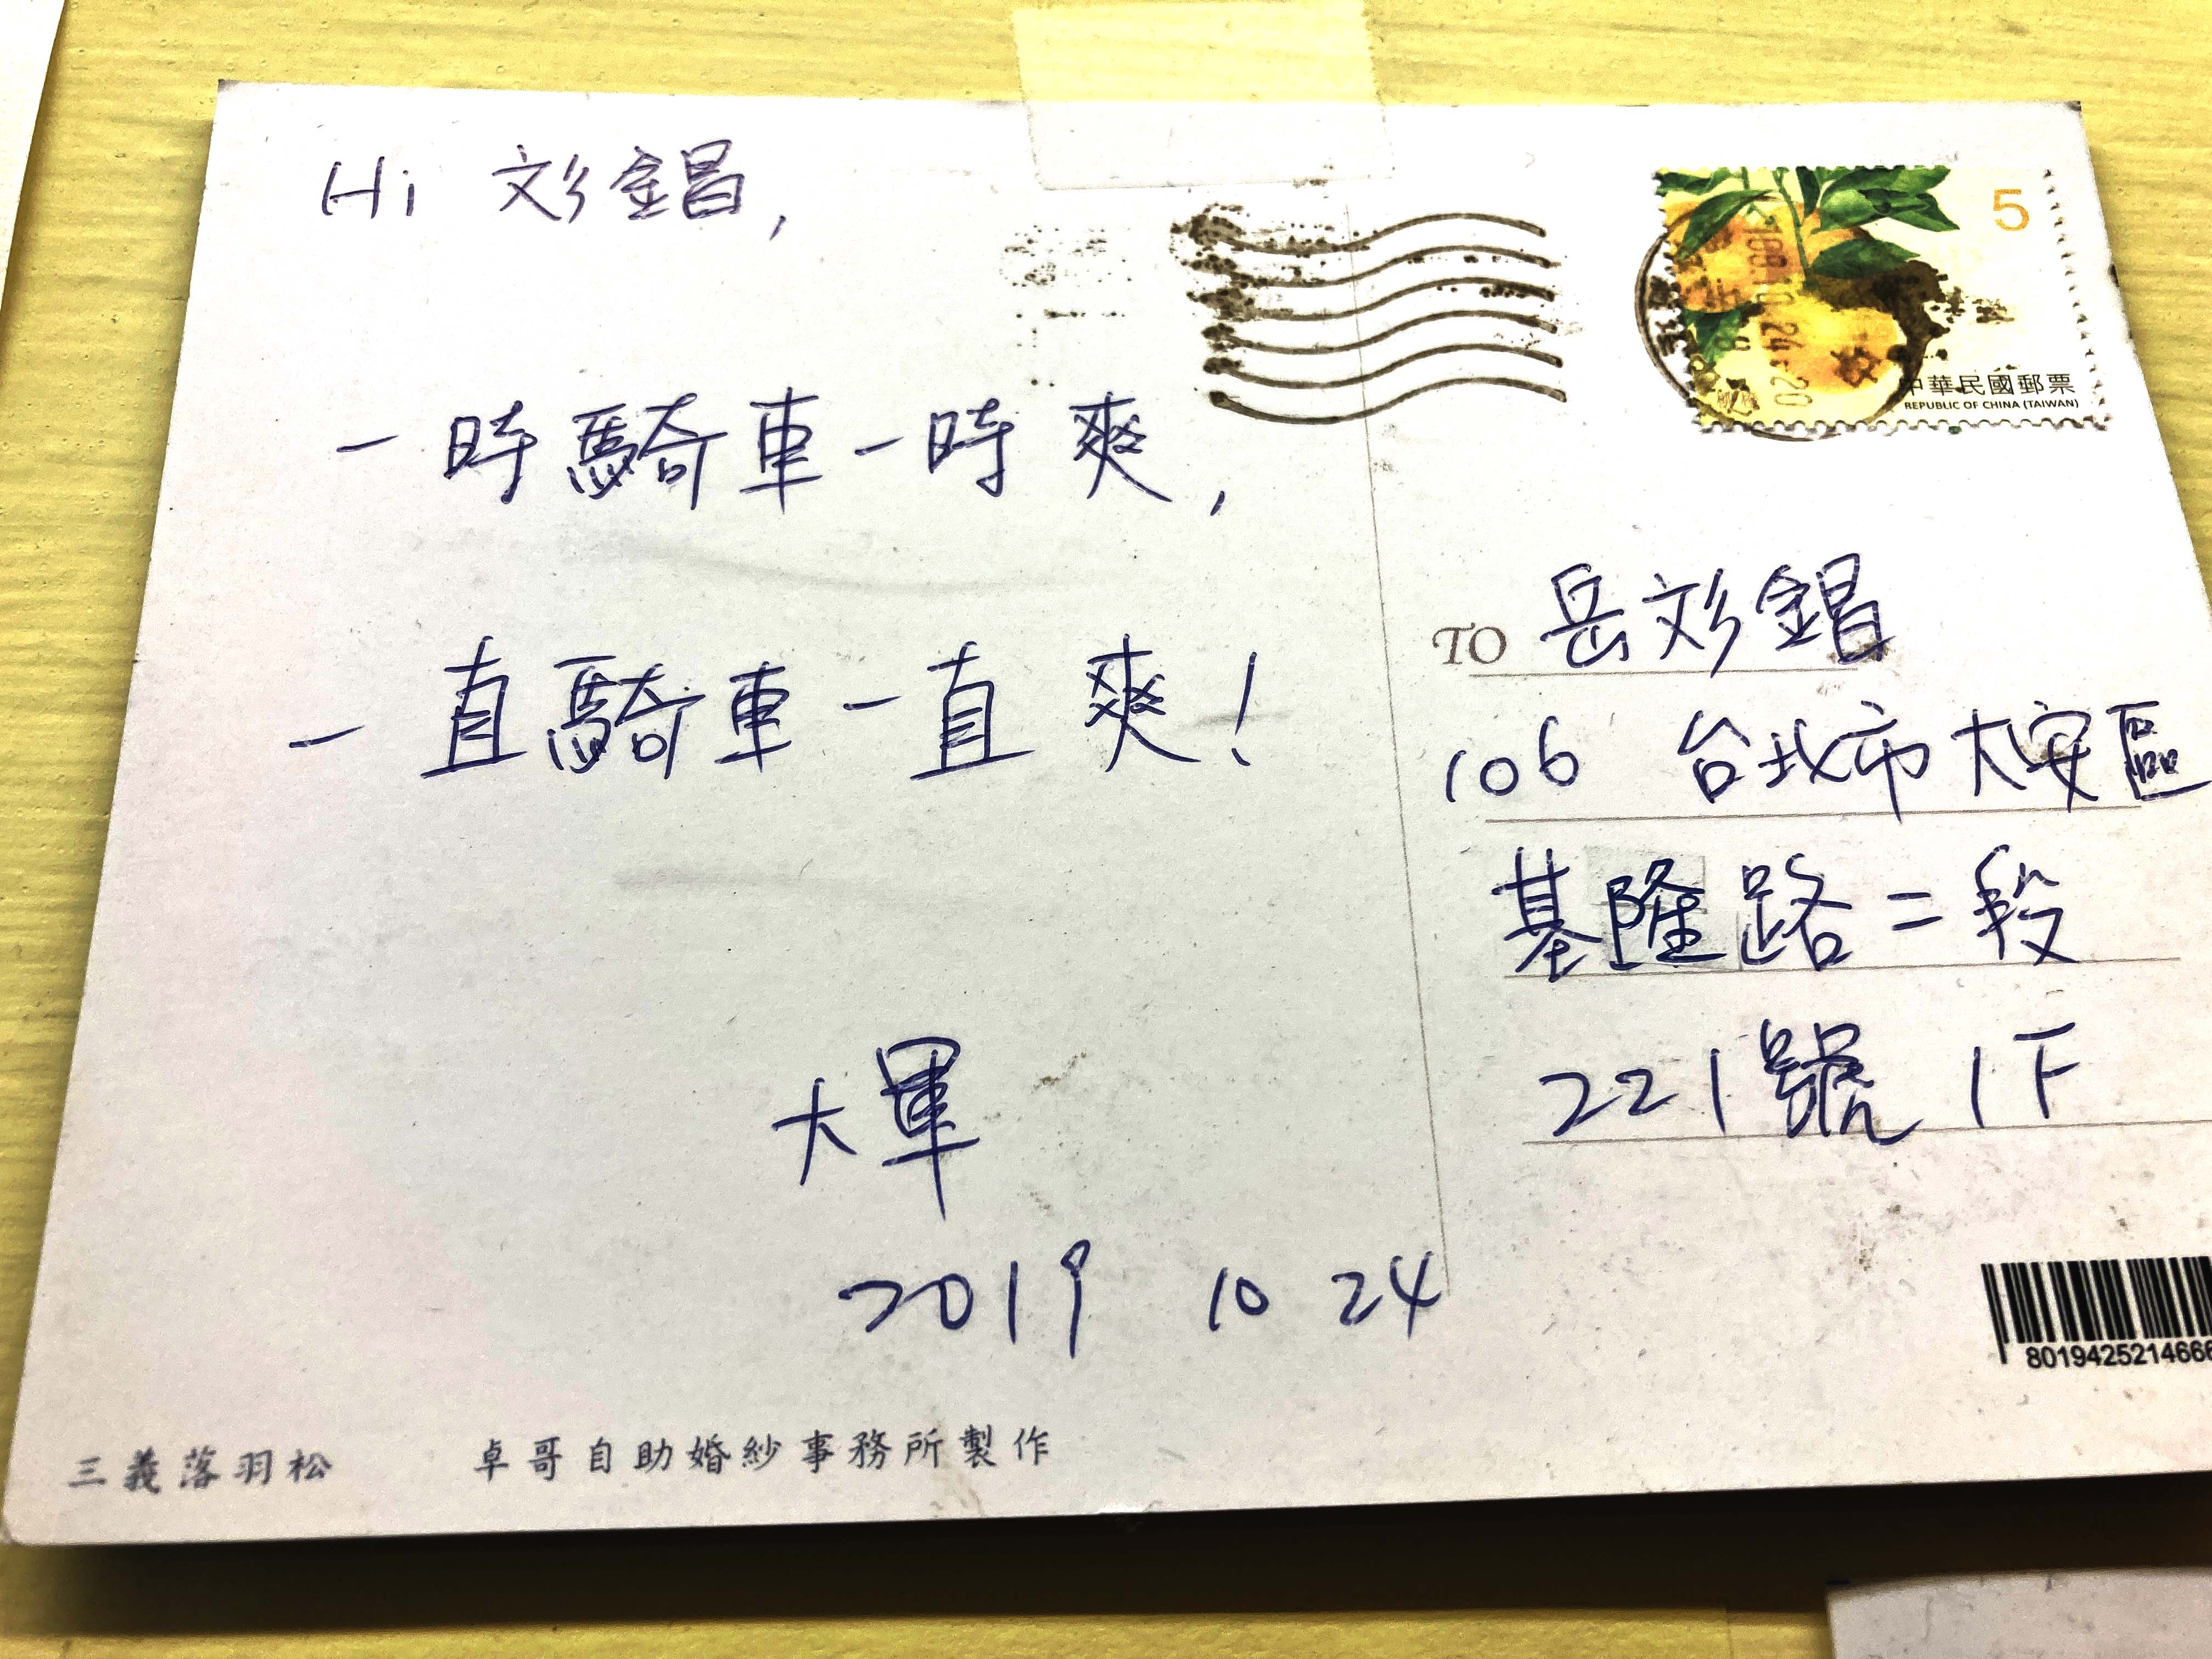 Hi 彣錩,
一時騎車一時爽,
一直騎車一直爽!
大軍
2019 10 24
三義落羽松 卓哥自助婚紗事務所製作
5
中華民國郵票
REPUBLIC OF CHINA (TAIWAN)
108.10.24.-20
TO 岳彣錩
106 台北市大安區
基隆路二段
221號 1F
8019425214666